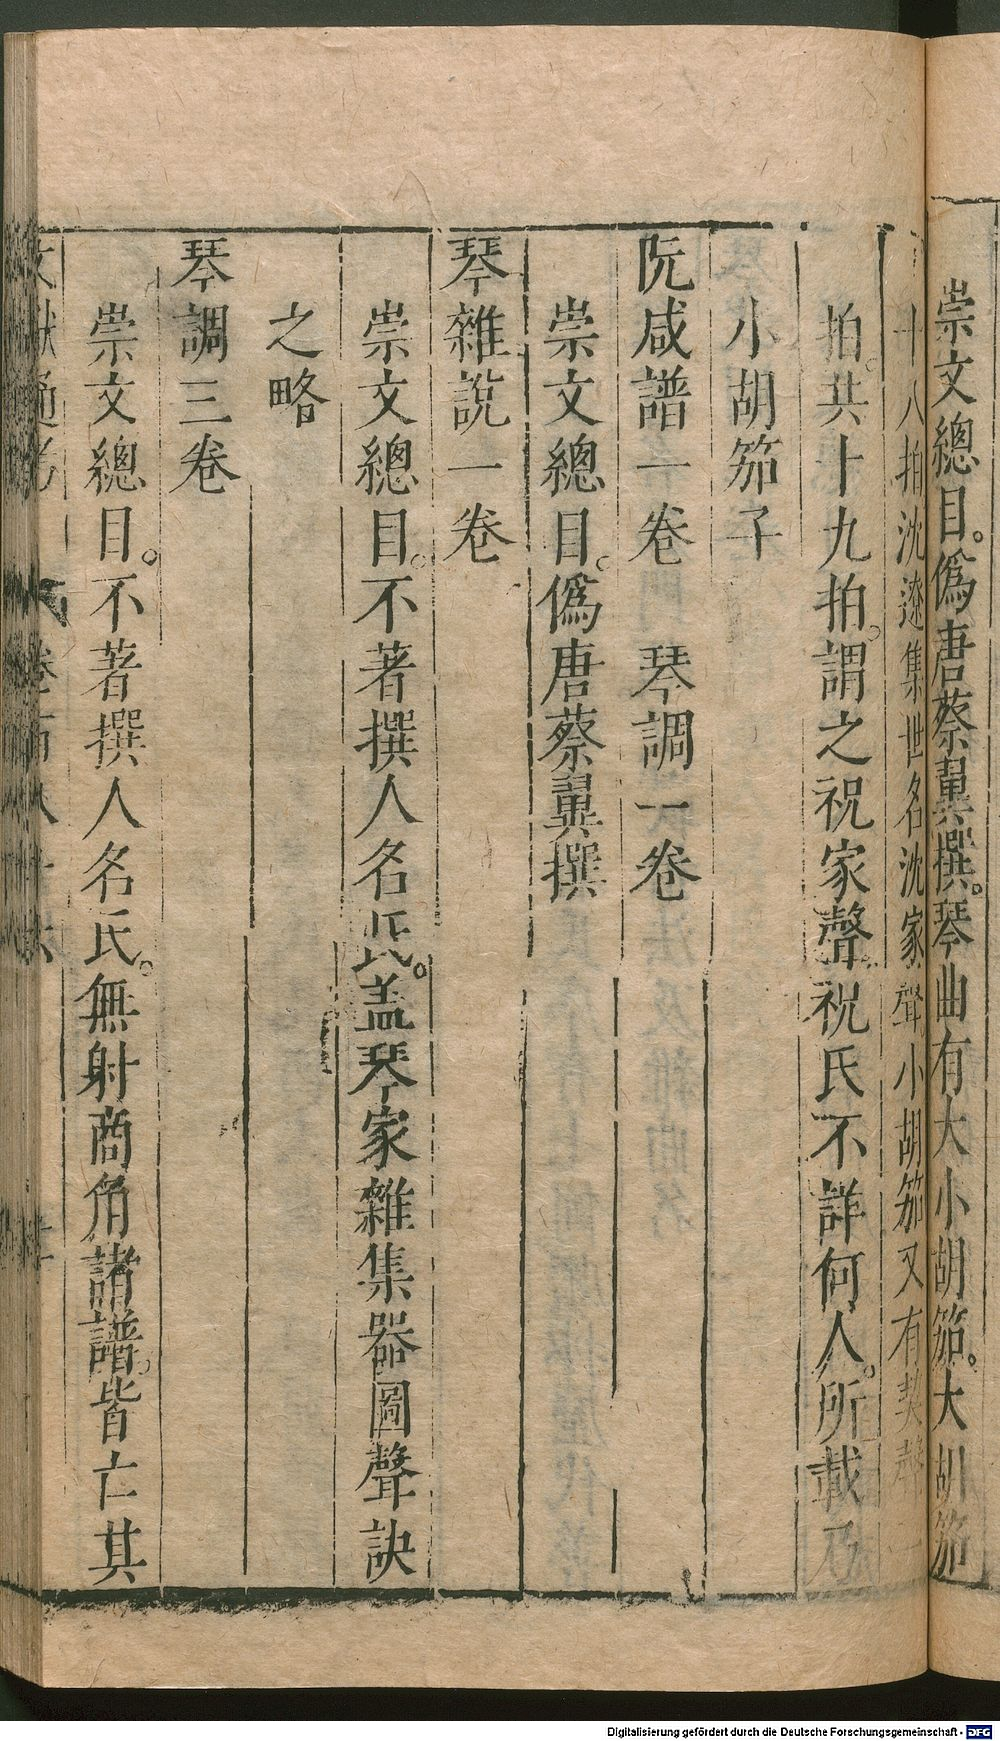 崇文總目。僞唐蔡翼撰。琴曲有大小胡笳。大胡笳
十八拍沈遼集世名沈家聲小胡笳又有契聲一
拍。共十九拍。謂之祝家聲。祝氏不詳何人。所載乃
小胡笳子
阮咸譜一卷 琴調一卷
崇文總目。僞唐蔡翼撰
琴雜說一卷
崇文總目。不著撰人名氏。盖琴家雜集器圖聲訣
之略
琴調三卷
崇文總目。不著撰人名氏。無射商角諸譜。皆亡其
文獻通考 卷百八十六
Digitalisierung gefördert durch die Deutsche Forschungsgemeinschaft - DFG